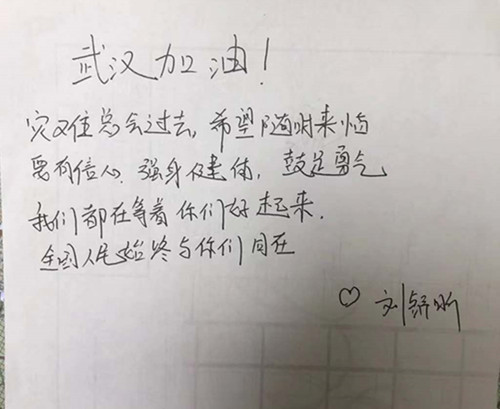 武汉加油！
灾难总会过去，希望随时来临
要有信心，强身健体，鼓足勇气
我们都在等着你们好起来．
全国人民始终与你们同在
♡ 刘